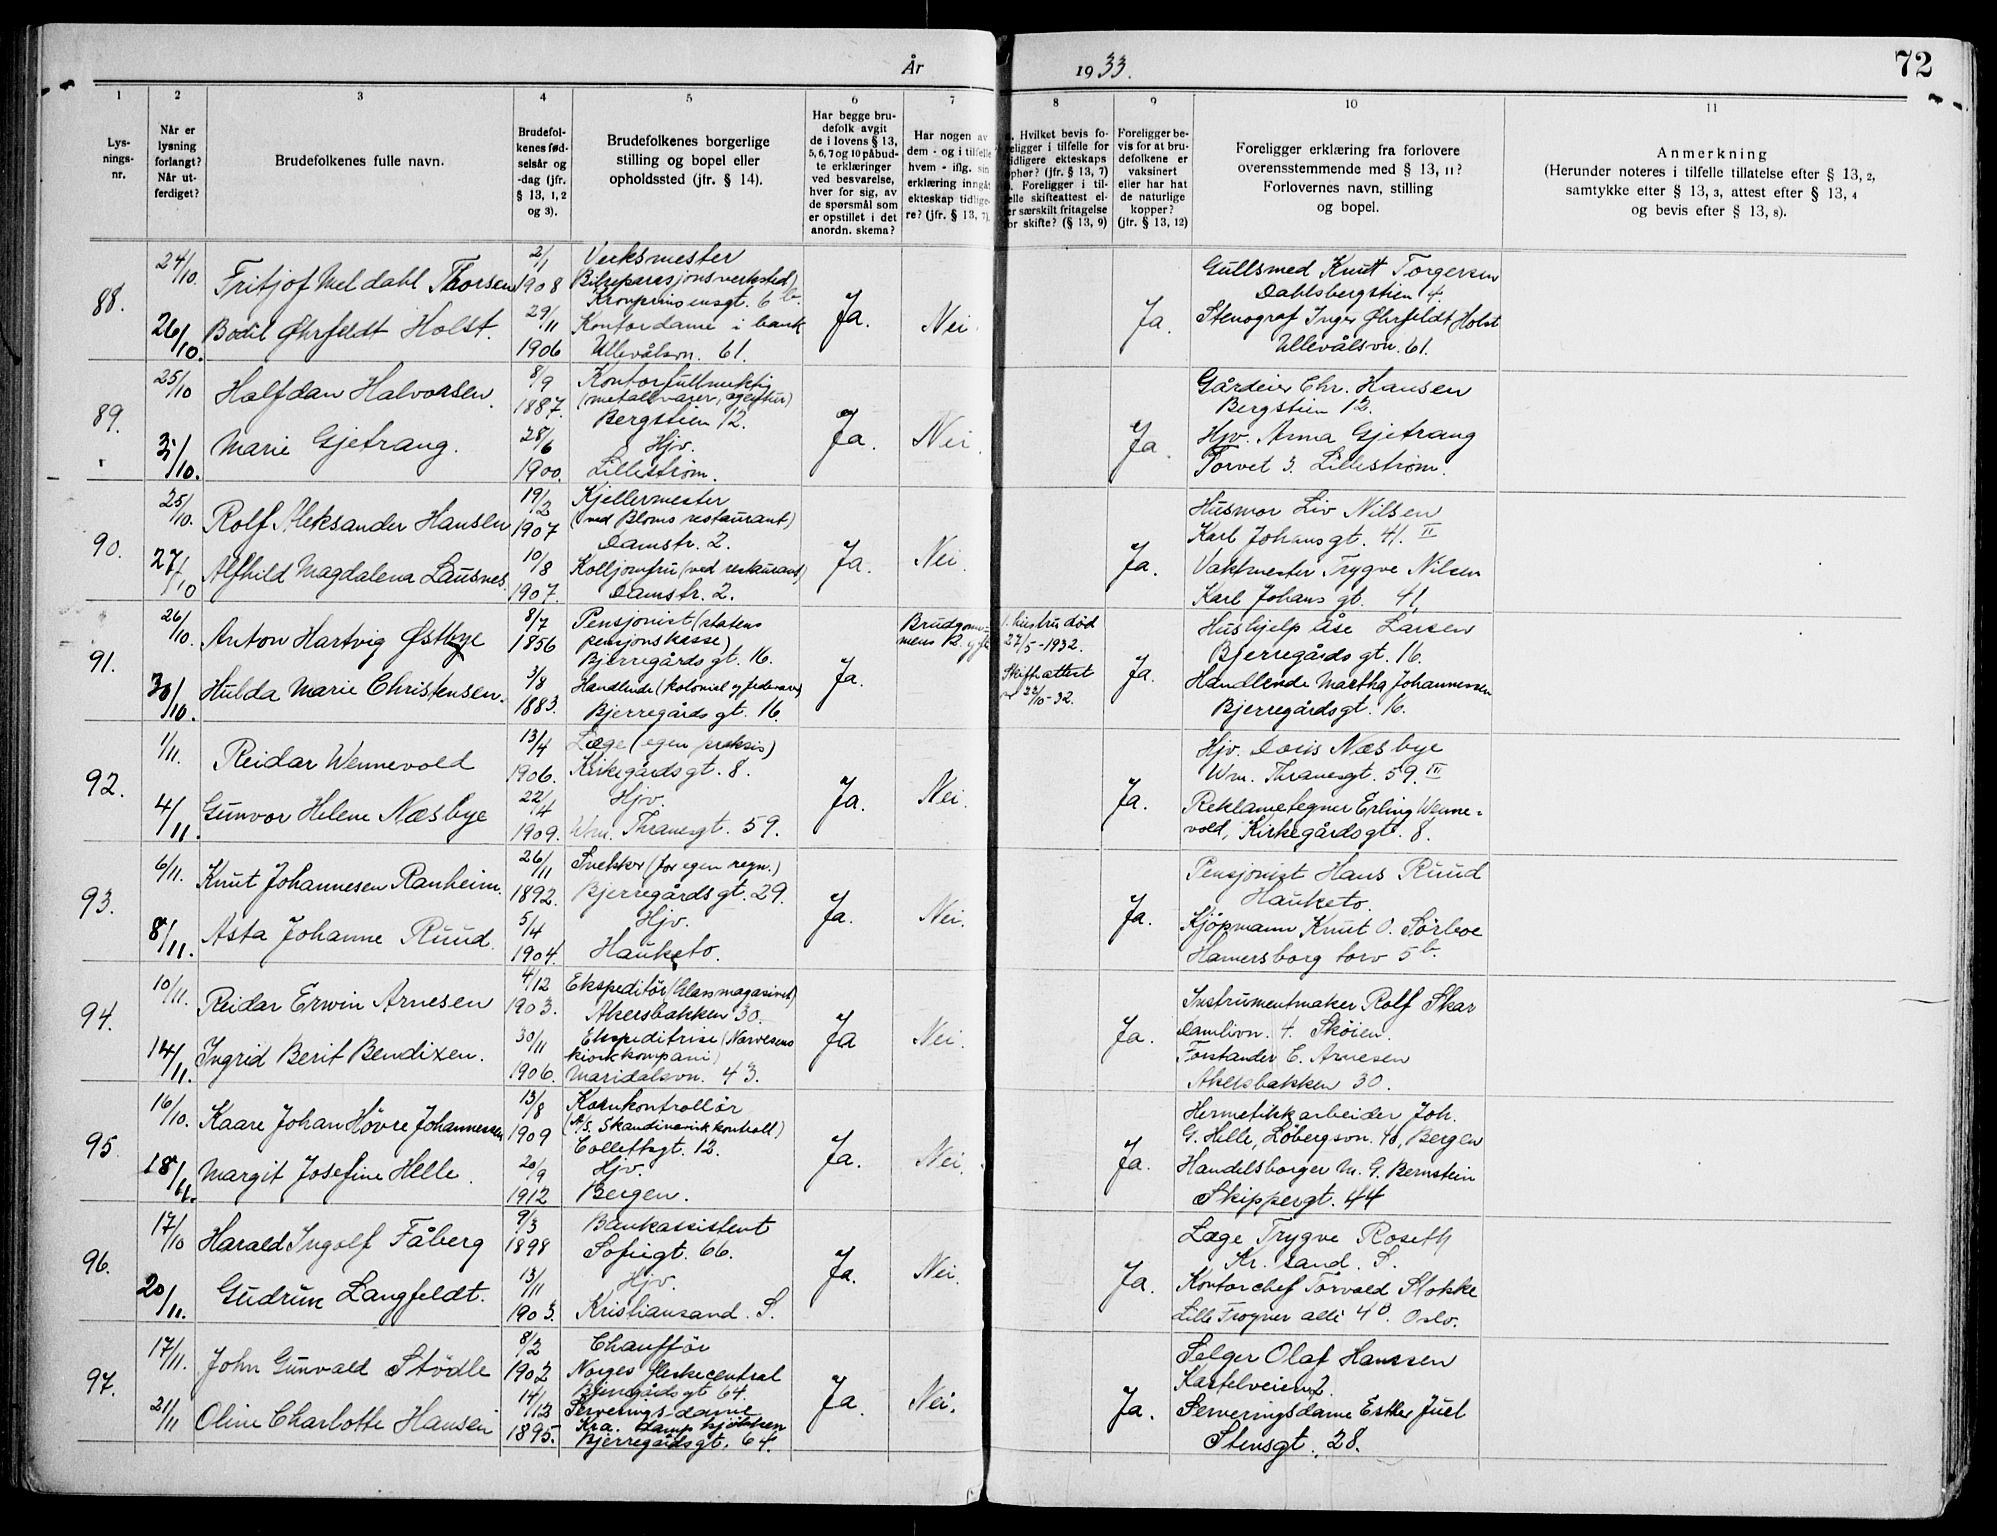 År 1933.
72
1 2 3 4 5 6 7 8 9 10 11
Lysnings-nr.
Når er lysning forlangt? Når utferdiget?
Brudefolkenes fulle navn.
Brudefolkenes fødselsår og -dag (jfr. § 13, 1, 2 og 3).
Brudefolkenes borgerlige stilling og bopel eller opholdssted (jfr. § 14).
Har begge brudefolk avgit de i lovens § 13, 5, 6, 7 og 10 påbudte erklæringer ved besvarelse, hver for sig, av de spørsmål som er opstillet i det anordn. skema?
Har nogen av dem - og i tilfelle hvem - iflg. sin erklæring inngåt ekteskap tidligere? (jfr. § 13, 7).
Hvilket bevis foreligger i tilfelle for tidligere ekteskaps ophør? (jfr. § 13, 7) Foreligger i tilfelle skifteattest eller særskilt fritagelse for skifte? (§ 13, 9)
Foreligger bevis for at brudefolkene er vaksinert eller har hat de naturlige kopper? (jfr. § 13, 12)
Foreligger erklæring fra forlovere overensstemmende med § 13, 11? Forlovernes navn, stilling og bopel.
Anmerkning
(Herunder noteres i tilfelle tillatelse efter § 13, 2, samtykke efter § 13, 3, attest efter § 13, 4 og bevis efter § 13, 8).
88.
24/10.
26/10.
Fritjof Meldahl Thorsen
Bodil Øhrfeldt Holst.
2/1 1908
29/11 1906
Verksmester
Bilreparasjonsverksted)
Kronprinsensgt. 6 b.
Kontordame i bank
Ullevålsvn. 61.
Ja.
Nei.
Ja.
Gullsmed Knut Torgersen
Dahlsbergstien 4.
Stenograf Inger Øhrfeldt Holst
Ullevålsvn. 61.
89.
25/10
/10.
Halfdan Halvorsen.
Marie Gjetrang.
8/9 1887.
28/6 1900.
Kontorfullmektig
(metallvarer, agentur)
Bergstien 12.
Hjv.
Lillestrøm.
Ja.
Nei.
Ja.
Gårdeier Chr. Hansen
Bergstien 12.
Hjv. Anna Gjetrang
Torvet 3. Lillestrøm.
90.
25/10.
27/10
Rolf Aleksander Hansen
Alfhild Magdalena Lausnes
19/2 1907
10/8 1907.
Kjellermester
(ved Bloms restaurant)
Damstr. 2.
Kolljomfru (ved restaurant)
Damstr. 2.
Ja.
Nei.
Ja.
Husmor Liv Nilsen
Karl Johans gt. 41. II
Vaktmester Trygve Nilsen
Karl Johans gt. 41.
91.
26/10.
30/10.
Anton Hartvig Østbye
Hulda Marie Christensen.
8/7 1856
3/8 1883.
Pensjonist (statens
pensjonskasse)
Bjerregårds gt. 16.
Handlende (kolonial og federavis)
Bjerregårds gt. 16.
Ja.
Brudgommens 2. gifte
1. hustru død
27/5-1932.
Skifteattest
22/10-32.
Ja.
Hushjelp Åse Larsen
Bjerregårds gt. 16.
Handlende Martha Johannessen
Bjerregårdsgt. 16.
92.
1/11.
4/11.
Reidar Wennevold
Gunvor Helene Næsbye
13/4 1906.
22/4 1909.
Læge (egen praksis)
Kirkegårdsgt. 8.
Hjv.
Wm. Thranesgt. 59.
Ja.
Nei.
Ja.
Hjv. Doris Næsbye
Wm. Thranesgt. 59. III
Reklametegner Erling Wenne-
vold, Kirkegårdsgt. 8.
93.
6/11.
8/11.
Knut Johannesen Ranheim.
Asta Johanne Ruud.
26/11 1892.
5/4 1904.
Snekker (for egen regn.)
Bjerregårds gt. 29.
Hjv.
Hauketo.
Ja.
Nei.
Ja.
Pensjonist Hans Ruud
Hauketo.
Kjøpmann Knut O. Sørboe
Hamersborg torv 5 b.
94.
10/11.
14/11.
Reidar Erwin Arnesen
Ingrid Berit Bendixen.
4/12 1903.
30/11 1906.
Ekspeditør (Glasmagasinet)
Akersbakken 30.
Ekspeditrise (Narvesens
kioskkompani)
Maridalsvn. 43.
Ja
Nei.
Ja.
Instrumentmaker Rolf Skar
Damlivn. 4. Skøien.
Forstander E. Arnesen
Akersbakken 30.
95.
16/10.
18/11.
Kaare Johan Høvre Johannessen
Margit Josefine Helle.
13/8 1909
20/9 1912
Kornkontrollør
(A/S. Skandinavisk kontroll)
Collettsgt. 12.
Hjv.
Bergen.
Ja.
Nei.
Ja.
Hermetikkarbeider Joh.
G. Helle, Løbergsvn. 40, Bergen
Handelsborger M. G. Bernstein
Skippergt. 44
96.
17/10
20/11.
Harald Ingolf Fåberg
Gudrun Langfeldt.
9/3 1898
13/11 1903.
Bankassistent
Sofiegt. 66.
Hjv.
Kristiansand. S.
Ja.
Nei.
Ja.
Læge Trygve Roseth
Kr. sand. S.
Kontorchef Torvald Stokke
Lille Frogner alle 4 B. Oslo.
97.
17/11.
21/11
John Gunvald Stødle
Oline Charlotte Hansen
8/2 1902
14/12 1895.
Chauffør
Norges fleskecentral
Bjerregårdsgt 64.
Serverings-dame
Kra. dampkjøkken
Bjerregårdsgt. 64.
Ja.
Nei.
Ja.
Selger Olaf Hanssen
Kastelveien 2.
Serveringsdame Esther Juel
Stensgt. 28.